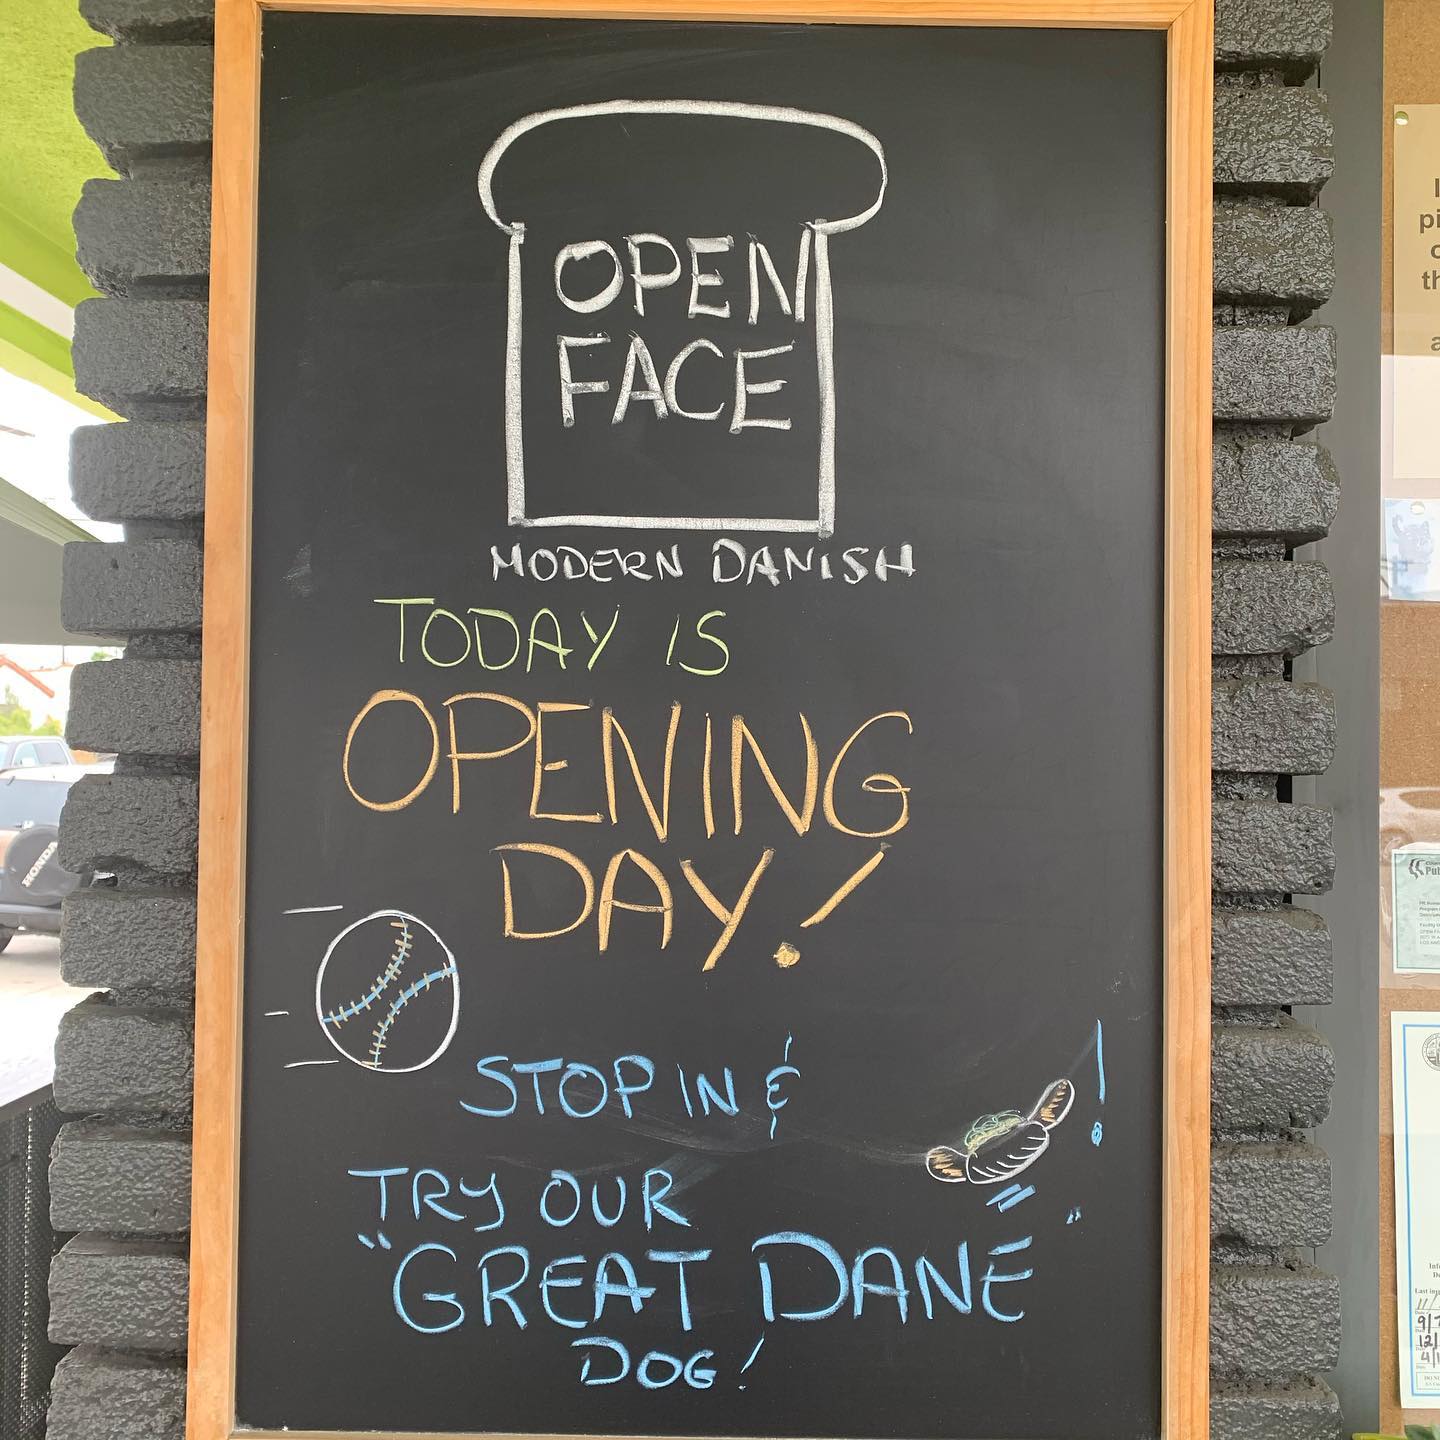 OPEN
FACE
MODERN DANISH
TODAY IS
OPENING
DAY!
STOP IN &
!
TRY OUR
"GREAT DANE"
DOG!
HONDA